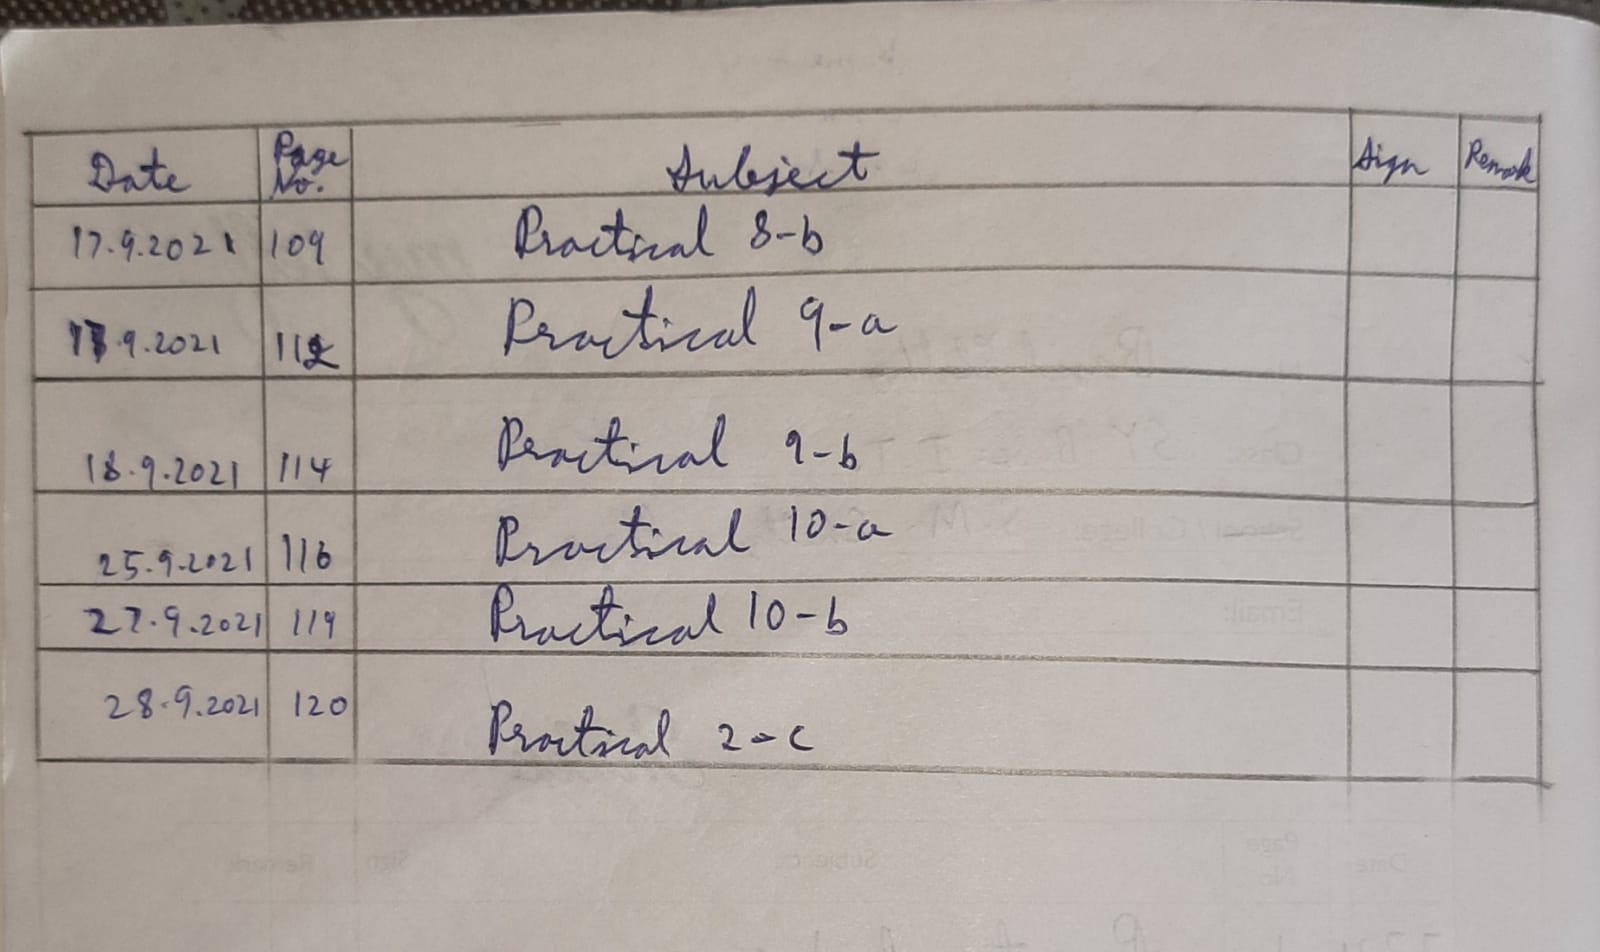 Date Page No. Subject Sign Remark
17.9.2021 109 Practical 8-b
17.9.2021 112 Practical 9-a
18.9.2021 114 Practical 9-b
25.9.2021 116 Practical 10-a
27.9.2021 119 Practical 10-b
28.9.2021 120 Practical 2-c